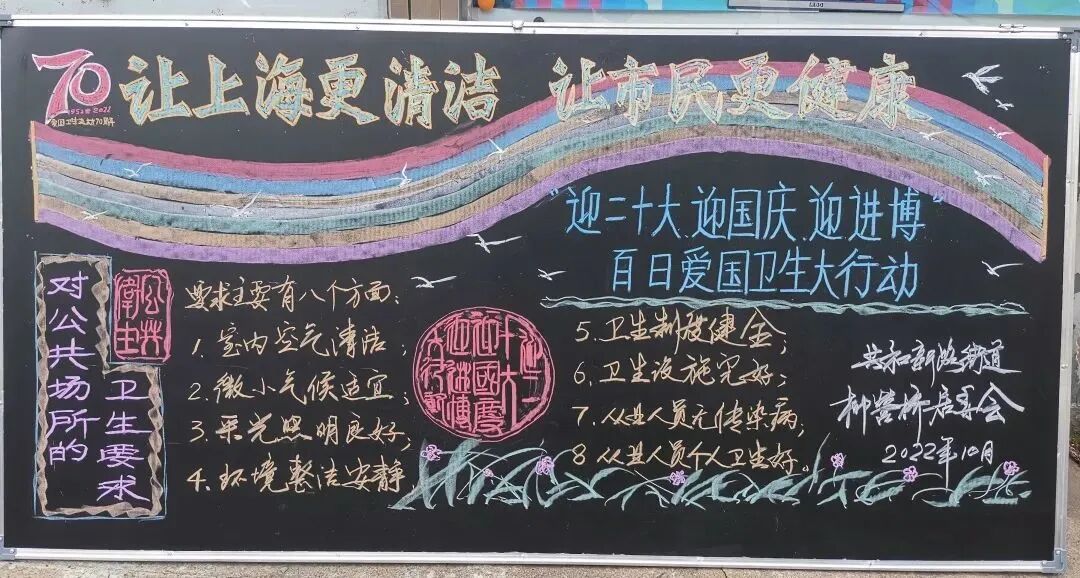 70
1952-2022
爱国卫生运动70周年
让上海更清洁 让市民更健康
"迎二十大 迎国庆 迎进博"
百日爱国卫生大行动
公共衛生
对公共场所的
卫生要求
要求主要有八个方面:
1. 室内空气清洁;
2. 微小气候适宜;
3. 采光照明良好;
4. 环境整洁安静
迎二十大
迎國慶
迎進博
大行動
5. 卫生制度健全;
6. 卫生设施完好;
7. 从业人员无传染病;
8 从业人员个人卫生好。
共和新路街道
柳营桥居委会
2022年10月